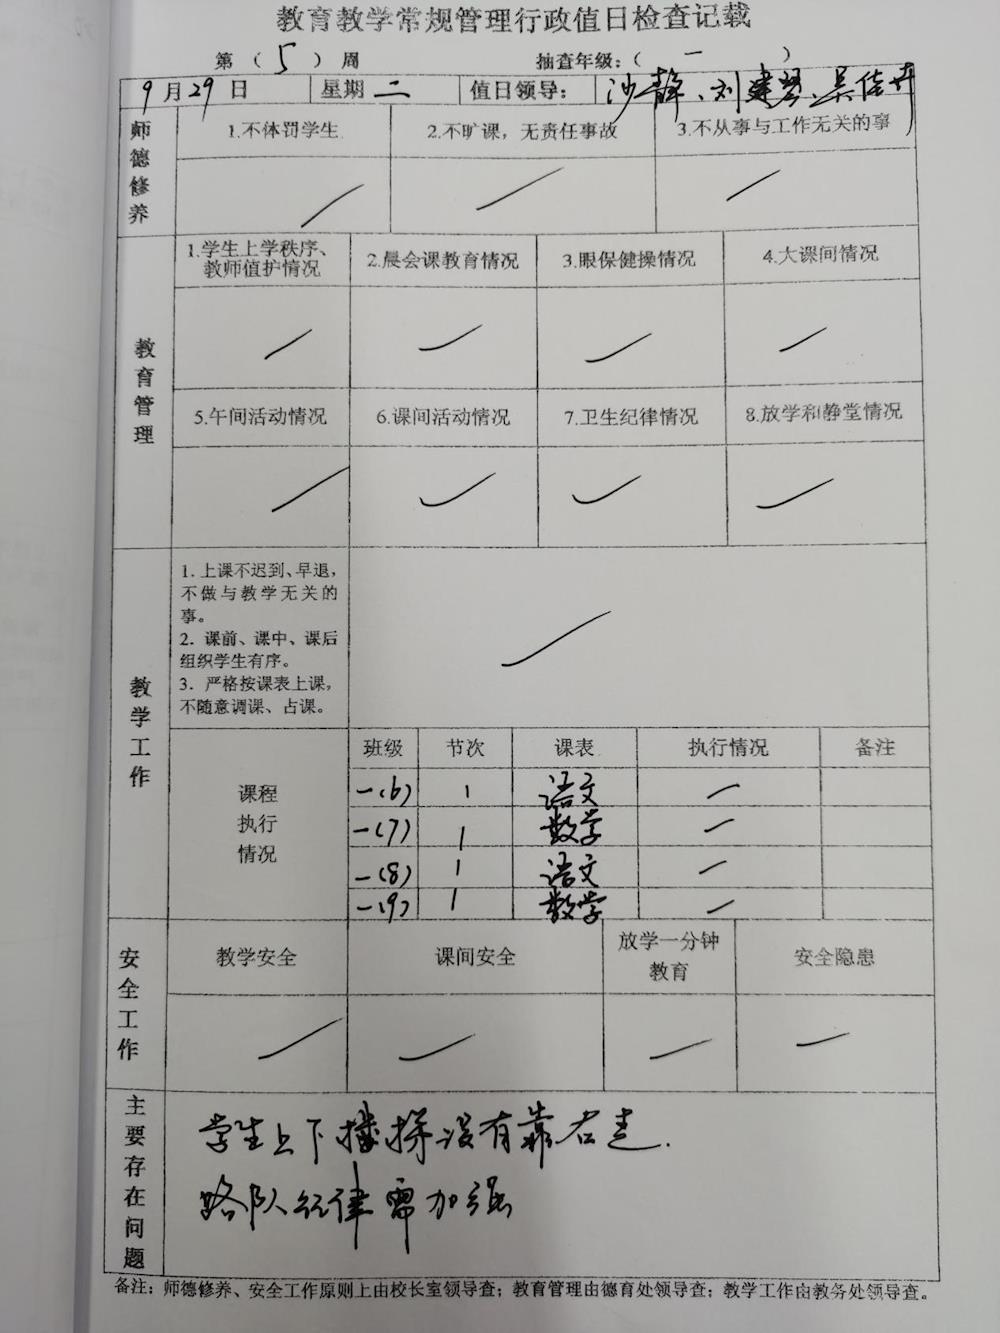 教育教学常规管理行政值日检查记载
第（5）周 抽查年级：（一）
9月29日 星期二 值日领导： 沙静、刘建琴、吴佳卉
师德修养
1.不体罚学生 2.不旷课，无责任事故 3.不从事与工作无关的事
教育管理
1.学生上学秩序、
教师值护情况
2.晨会课教育情况 3.眼保健操情况 4.大课间情况
5.午间活动情况 6.课间活动情况 7.卫生纪律情况 8.放学和静堂情况
教学工作
1．上课不迟到、早退，
不做与教学无关的
事。
2．课前、课中、课后
组织学生有序。
3．严格按课表上课，
不随意调课、占课。
课程
执行
情况
班级 节次 课表 执行情况 备注
一(6) 1 语文
一(7) 1 数学
一(8) 1 语文
一(9) 1 数学
安全工作
教学安全 课间安全 放学一分钟
教育
安全隐患
主要存在问题
学生上下楼梯没有靠右走.
路队纪律需加强
备注：师德修养、安全工作原则上由校长室领导查；教育管理由德育处领导查；教学工作由教务处领导查。